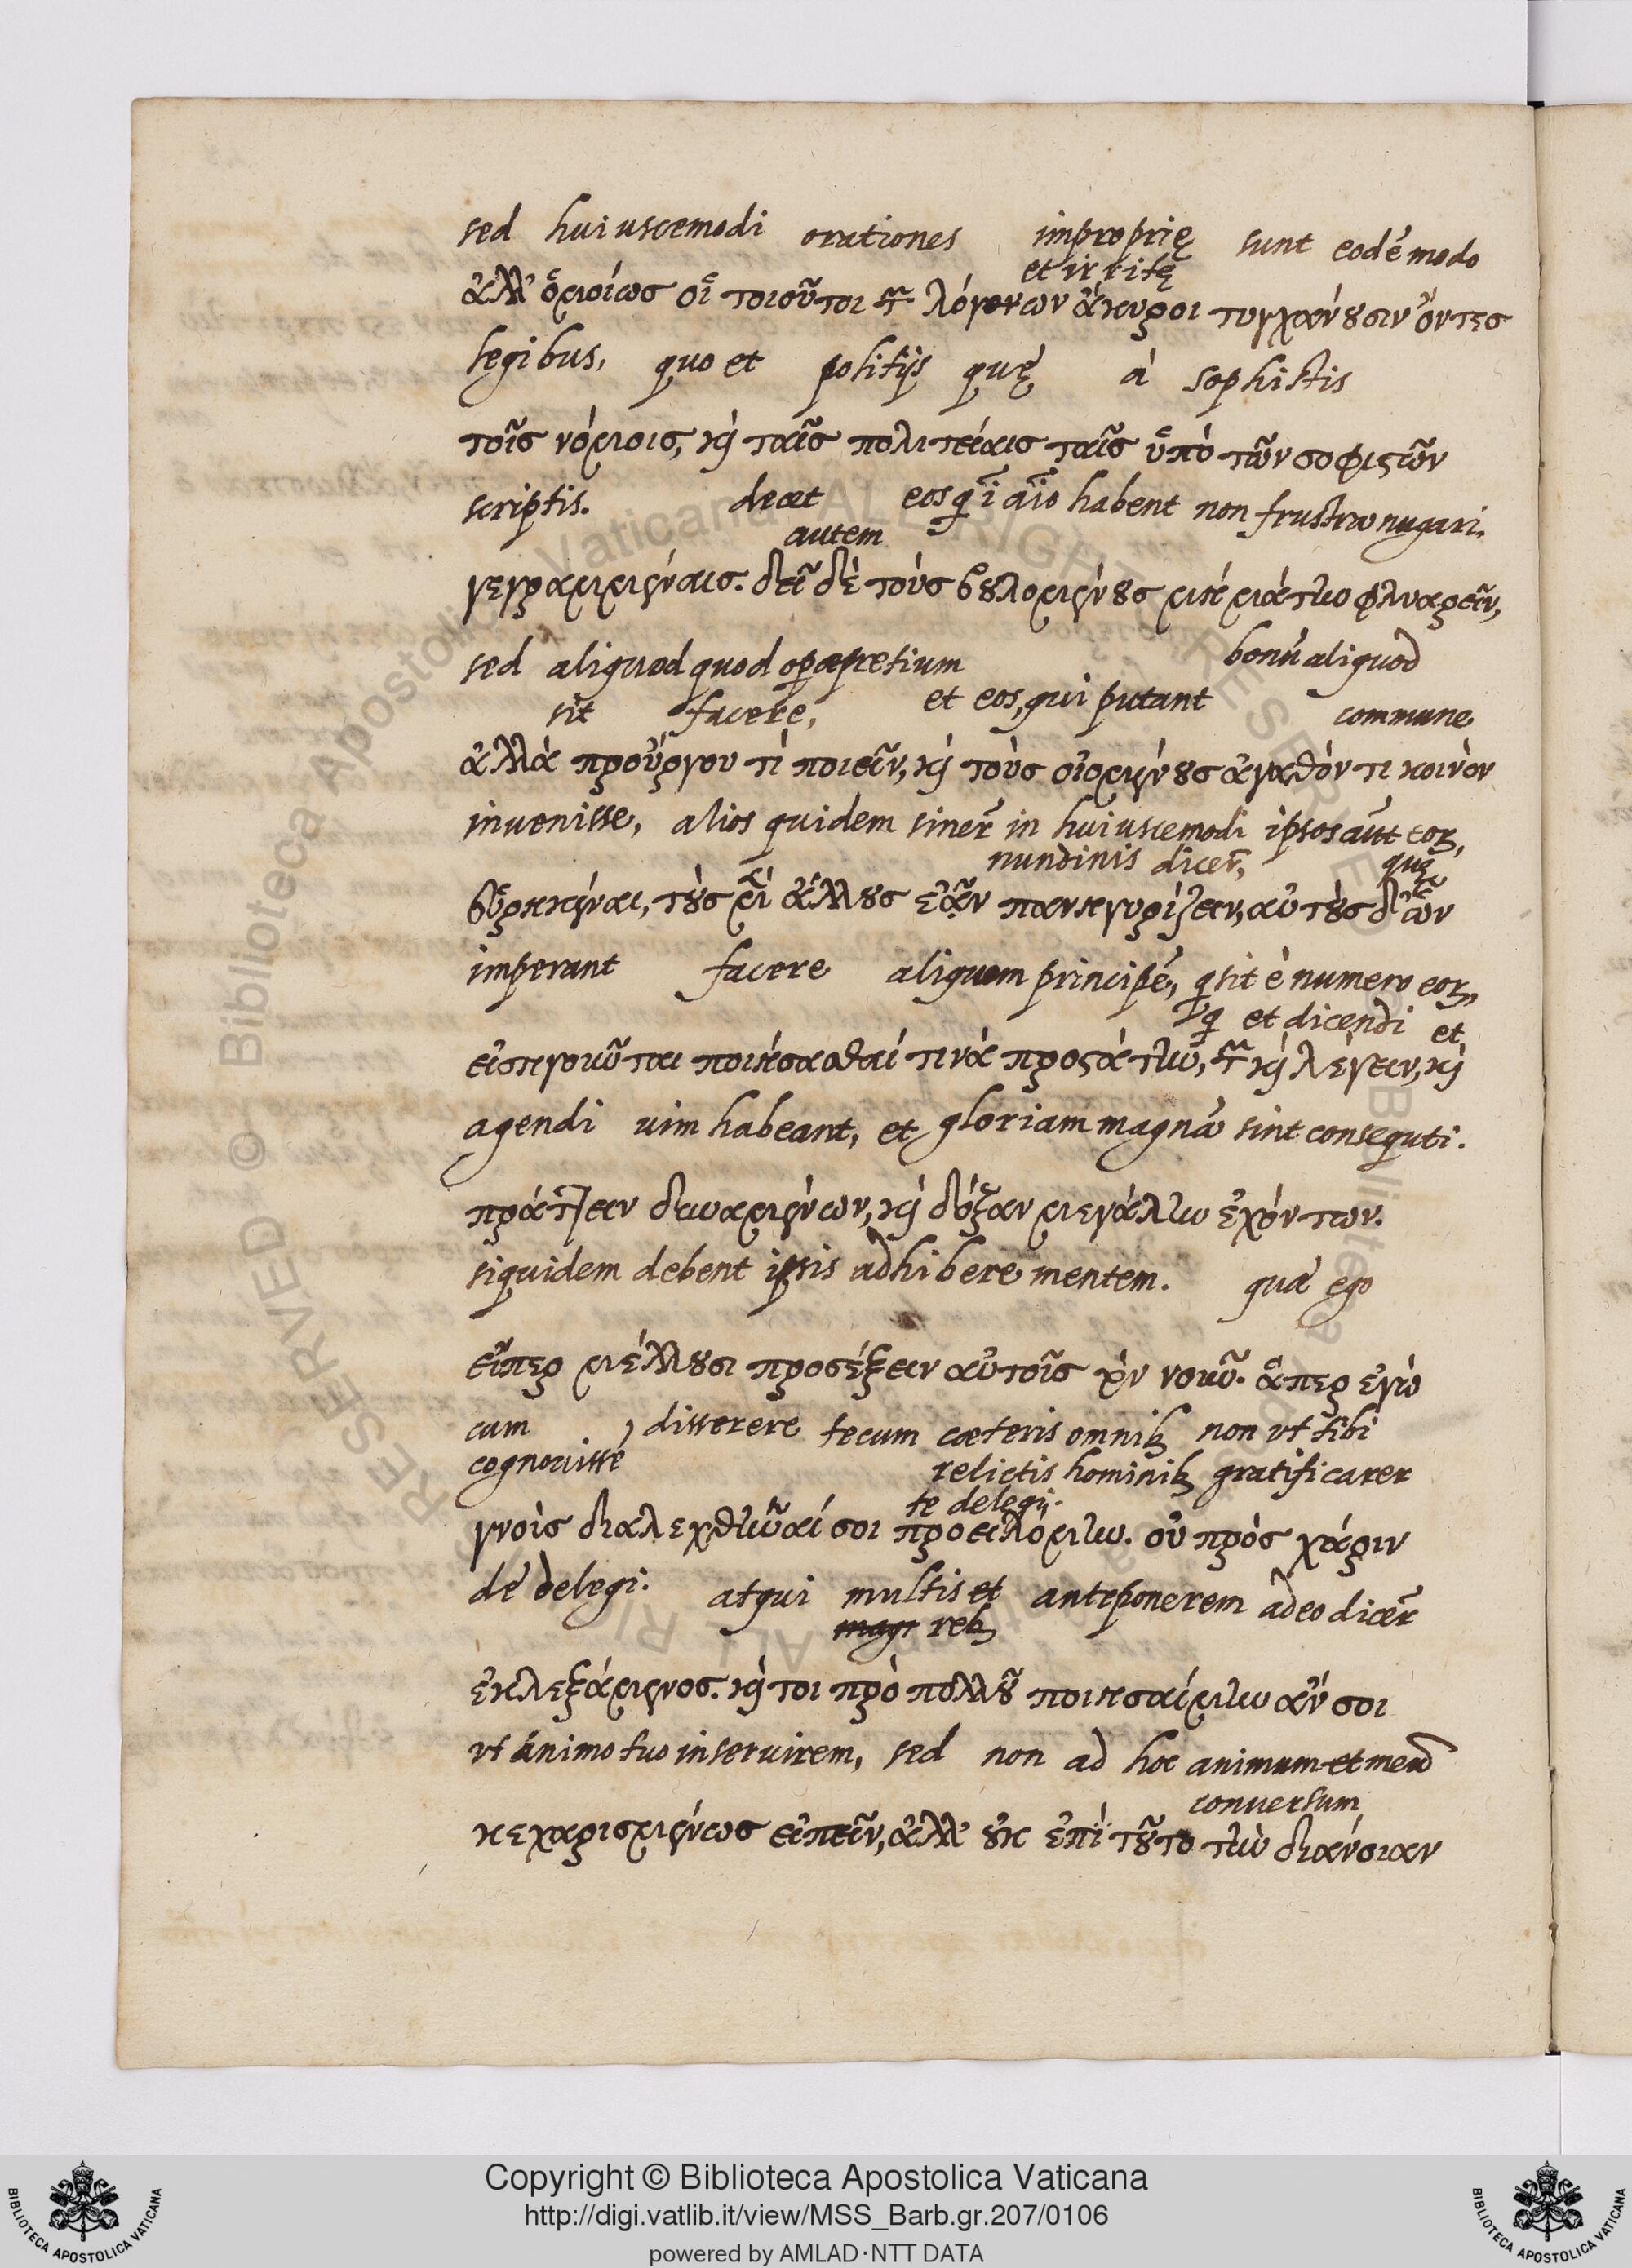 sed huiuscemodi orationes improprię sunt eodẽ modo
et irritę
ἀλλ' ὁμοίως οἱ τοιοῦτοι τῶν λόγων ἄκυροι τυγχάνουσιν ὄντες
legibus, quo et politijs quę à sophistis
τοῖς νόμοις, καὶ ταῖς πολιτείαις ταῖς ὑπὸ τῶν σοφιστῶν
scriptis. decet eos qui in animo habent non frustra nugari.
autem
γεγραμμέναις. δεῖ δὲ τοὺς βουλομένους μὴ μάτην φλυαρεῖν,
sed aliquod quod operæpretium bonũ aliquod
sit facere, et eos, qui putant commune
ἀλλὰ προὔργου τὶ ποιεῖν, καὶ τοὺς οἰομένους ἀγαθόν τι κοινὸν
inuenisse, alios quidem sinere in huiuscemodi ipsos aut eor,
nundinis dicer, quę
εὑρηκέναι, τοὺς μὲν ἄλλους ἐᾶν πανηγυρίζειν, αὐτοὺς δ' ὧν
imperant facere aliquem principẽ, q sit è numero eor,
q et dicendi et
εἰσηγοῦνται ποιήσασθαί τινά προστάτην, τῶν καὶ λέγειν, καὶ
agendi uim habeant, et gloriam magnã sint consequti.
πράττειν δυναμένων, καὶ δόξαν μεγάλην ἐχόντων.
siquidem debent ipsis adhibere mentem. quæ ego
εἴπερ μέλλουσι προσέξειν αὐτοῖς τὸν νοῦν. ἅπερ ἐγὼ
cum , disserere tecum cæteris omnib non ut tibi
cognouissẽ relictis hominib gratificarer
te delegi.
γνοὺς διαλεχθῆναί σοι προειλόμην. οὐ πρὸς χάριν
de delegi. atqui multis et anteponerem adeo dicer
magr reb
ἐκλεξάμενος. καὶ τοι πρὸ πολλοῦ ποιησαίμην ἄν σοι
ut animo tuo inseruirem, sed non ad hoc animum et meũ
conuersum
κεχαρισμένως εἰπεῖν, ἀλλ' οὐκ ἐπὶ τοῦτο τὴν διάνοιαν
Copyright © Biblioteca Apostolica Vaticana
http://digi.vatlib.it/view/MSS_Barb.gr.207/0106
powered by AMLAD·NTT DATA
BIBLIOTECA APOSTOLICA VATICANA
BIBLIOTECA APOSTOLICA VATICANA